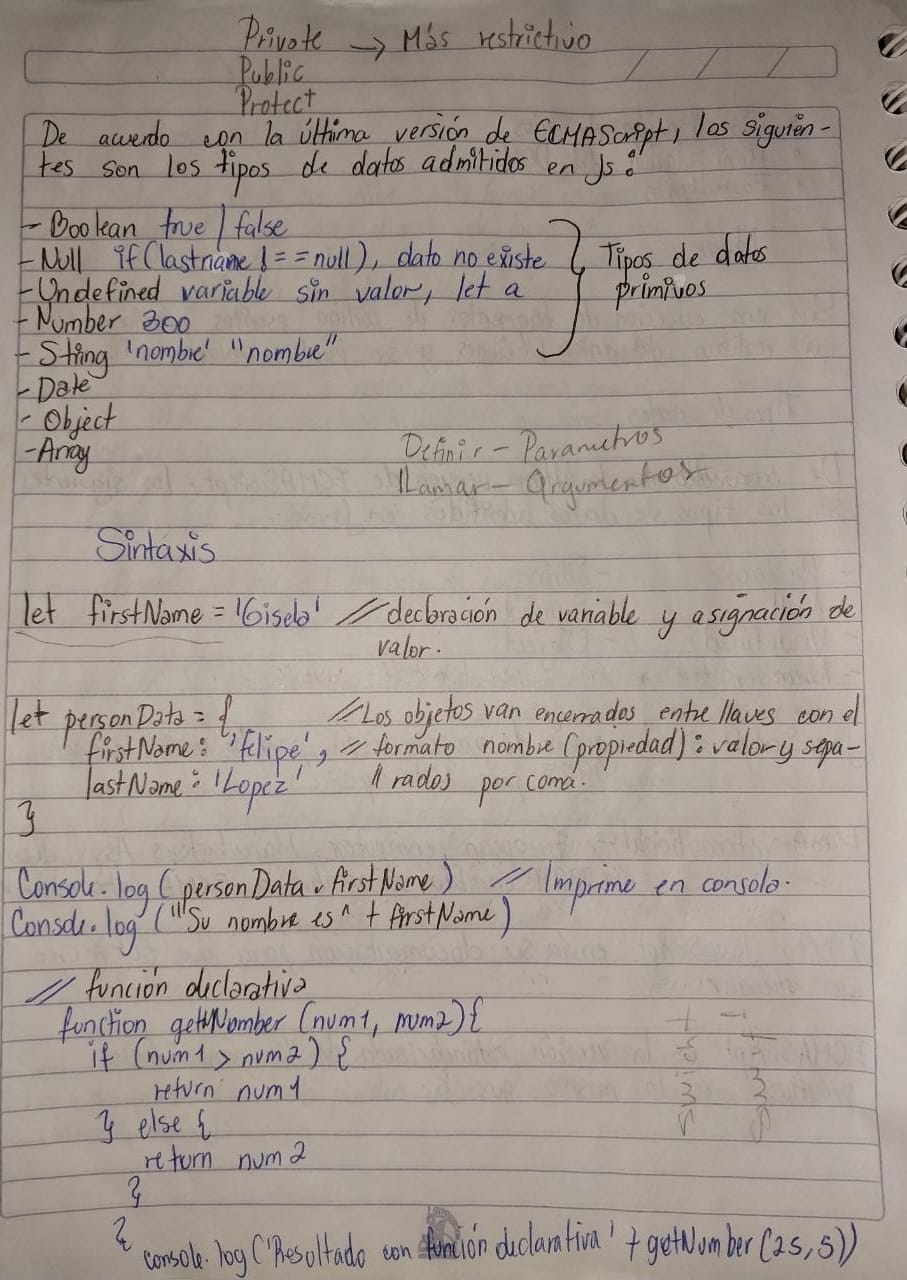 Private → Más restrictivo
Public
Protect
De acuerdo con la última versión de ECMAScript, los siguien-
tes son los tipos de datos admitidos en Js:
- Boolean true / false
- Null if(lastname !== null), dato no existe
- Undefined variable sin valor, let a
- Number 300
- Sting 'nombre' "nombre"
} Tipos de datos
primivos
- Date
- Object
- Array
Definir - Parametros
llamar - argumentos
Sintaxis
let firstName = 'Gisela' // declaración de variable y asignación de
valor.
let personData = { // Los objetos van encerrados entre llaves con el
firstName: 'felipe', // formato nombre (propiedad): valor y sepa-
lastName: 'Lopez' // rados por coma.
}
Console.log(personData.firstName) // Imprime en consola.
Console.log("Su nombre es" + firstName)
// función declarativa
function getNumber (num1, num2){
if (num1 > num2) {
return num1
} else {
return num2
}
}
console.log('Resultado con función declarativa' + getNumber(25,5))